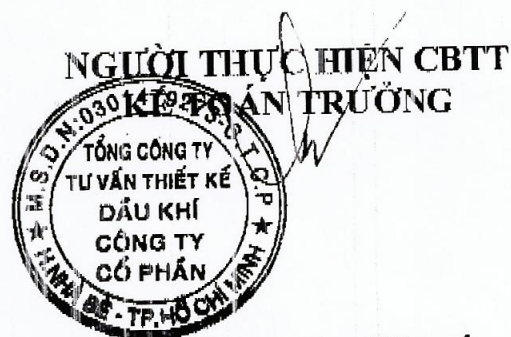 NGƯỜI THỰC HIỆN CBTT
KẾ TOÁN TRƯỞNG
TỔNG CÔNG TY
TƯ VẤN THIẾT KẾ
DẦU KHÍ
CÔNG TY
CỔ PHẦN
H.NHÀ BÈ - TP.HỒ CHÍ MINH